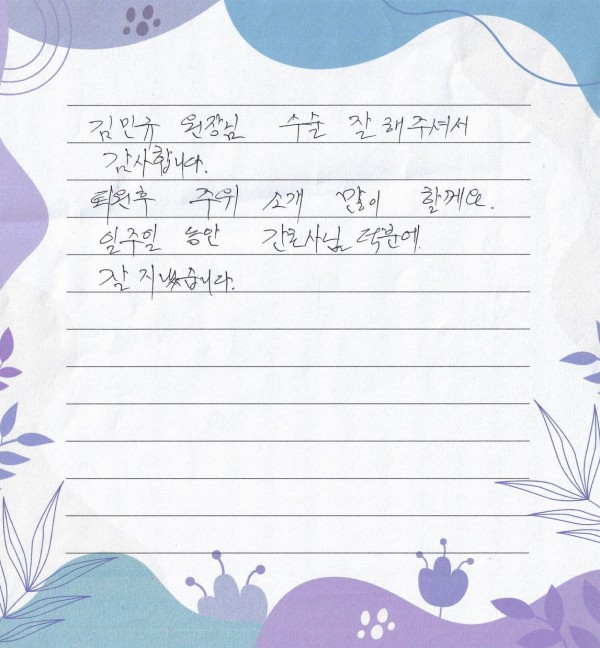 김민규 원장님 수술 잘 해주셔서
감사합니다.
퇴원후 주위 소개 많이 할께요.
일주일 동안 간호사님 덕분에
잘 지냈습니다.